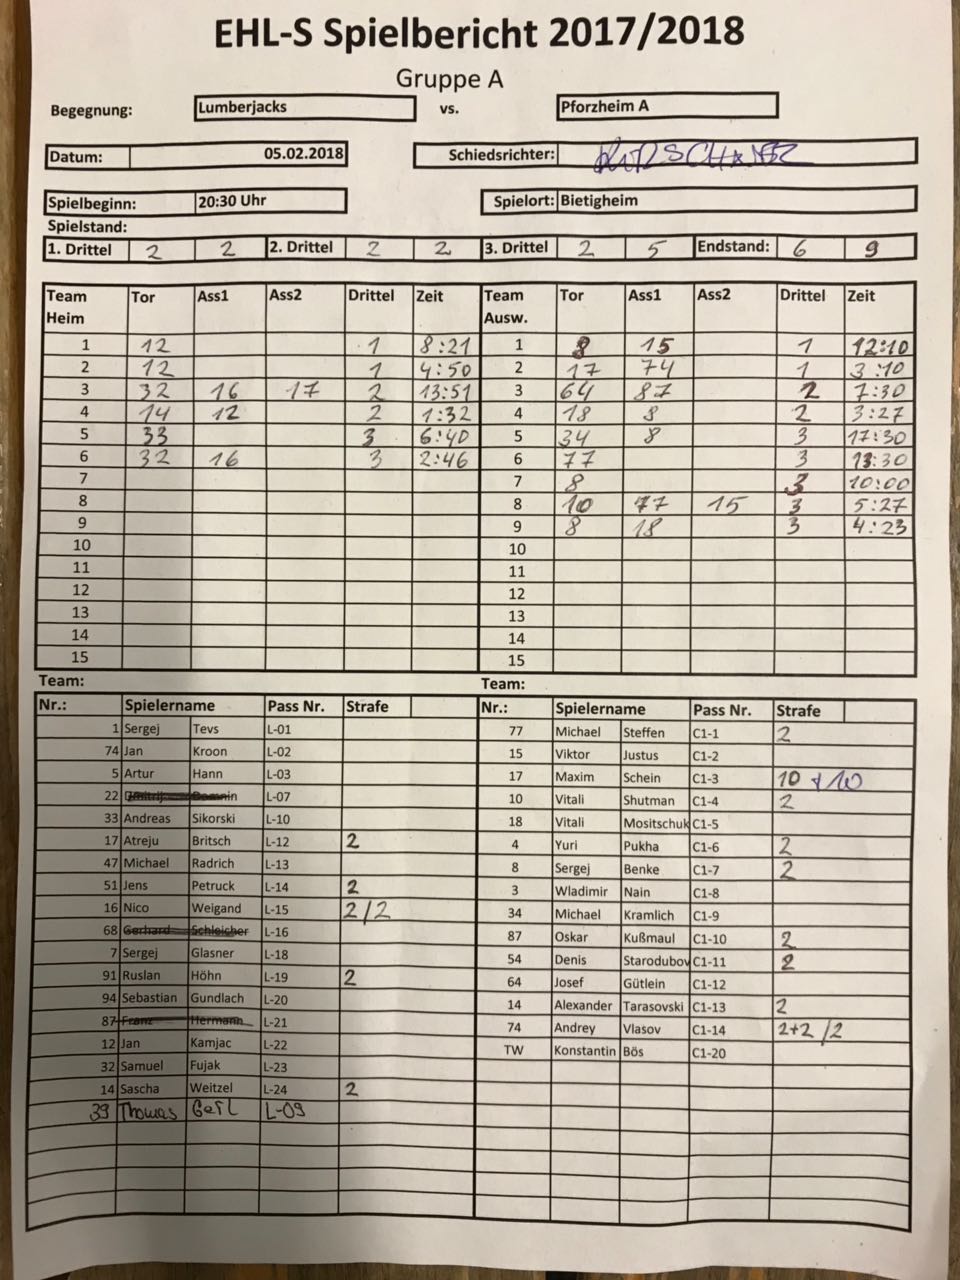 EHL-S Spielbericht 2017/2018
Gruppe A
Begegnung: Lumberjacks vs. Pforzheim A
Datum: 05.02.2018 Schiedsrichter:
Spielbeginn: 20:30 Uhr Spielort: Bietigheim
Spielstand:
1. Drittel 2 2 2. Drittel 2 2 3. Drittel 2 5 Endstand: 6 9
Team Heim Tor Ass1 Ass2 Drittel Zeit Team Ausw. Tor Ass1 Ass2 Drittel Zeit
1 12 1 8:21 1 8 15 1 12:10
2 12 1 4:50 2 17 74 1 3:10
3 32 16 17 2 13:51 3 64 87 2 7:30
4 14 12 2 1:32 4 18 8 2 3:27
5 33 3 6:40 5 34 8 3 17:30
6 32 16 3 2:46 6 77 3 13:30
7 7 8 3 10:00
8 8 10 77 15 3 5:27
9 9 8 18 3 4:23
10 10
11 11
12 12
13 13
14 14
15 15
Team: Team:
Nr.: Spielername Pass Nr. Strafe Nr.: Spielername Pass Nr. Strafe
1 Sergej Tevs L-01 77 Michael Steffen C1-1 2
74 Jan Kroon L-02 15 Viktor Justus C1-2
5 Artur Hann L-03 17 Maxim Schein C1-3 10 + 10
22 L-07 10 Vitali Shutman C1-4 2
33 Andreas Sikorski L-10 18 Vitali Mositschuk C1-5
17 Atreju Britsch L-12 2 4 Yuri Pukha C1-6 2
47 Michael Radrich L-13 8 Sergej Benke C1-7 2
51 Jens Petruck L-14 2 3 Wladimir Nain C1-8
16 Nico Weigand L-15 2/2 34 Michael Kramlich C1-9
68 Gerhard Schleicher L-16 87 Oskar Kußmaul C1-10 2
7 Sergej Glasner L-18 54 Denis Starodubov C1-11 2
91 Ruslan Höhn L-19 2 64 Josef Gütlein C1-12
94 Sebastian Gundlach L-20 14 Alexander Tarasovski C1-13 2
87 Franz Hermann L-21 74 Andrey Vlasov C1-14 2+2/2
12 Jan Kamjac L-22 TW Konstantin Bös C1-20
32 Samuel Fujak L-23
14 Sascha Weitzel L-24 2
39 Thomas Gerl L-09